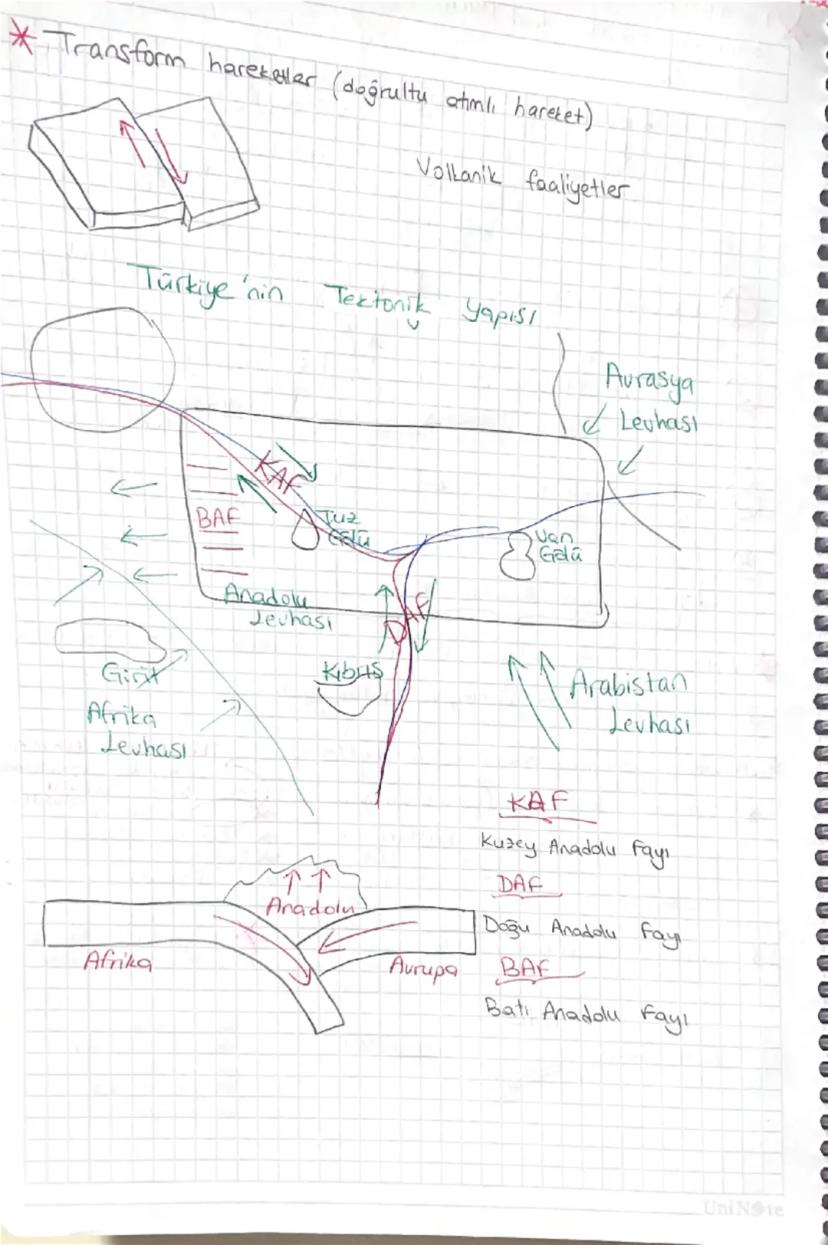 * Transform hareketler (doğrultu atımlı hareket)
Volkanik faaliyetler
Türkiye'nin Tektonik yapısı
Avrasya
Levhası
KAF
BAF
Tuz
Gölü
Van
Gölü
Anadolu
Levhası
DAF
Kıbrıs
Girit
Afrika
Levhası
Arabistan
Levhası
KAF
Kuzey Anadolu Fayı
DAF
Doğu Anadolu Fayı
BAF
Batı Anadolu Fayı
Anadolu
Afrika
Avrupa
UniNote